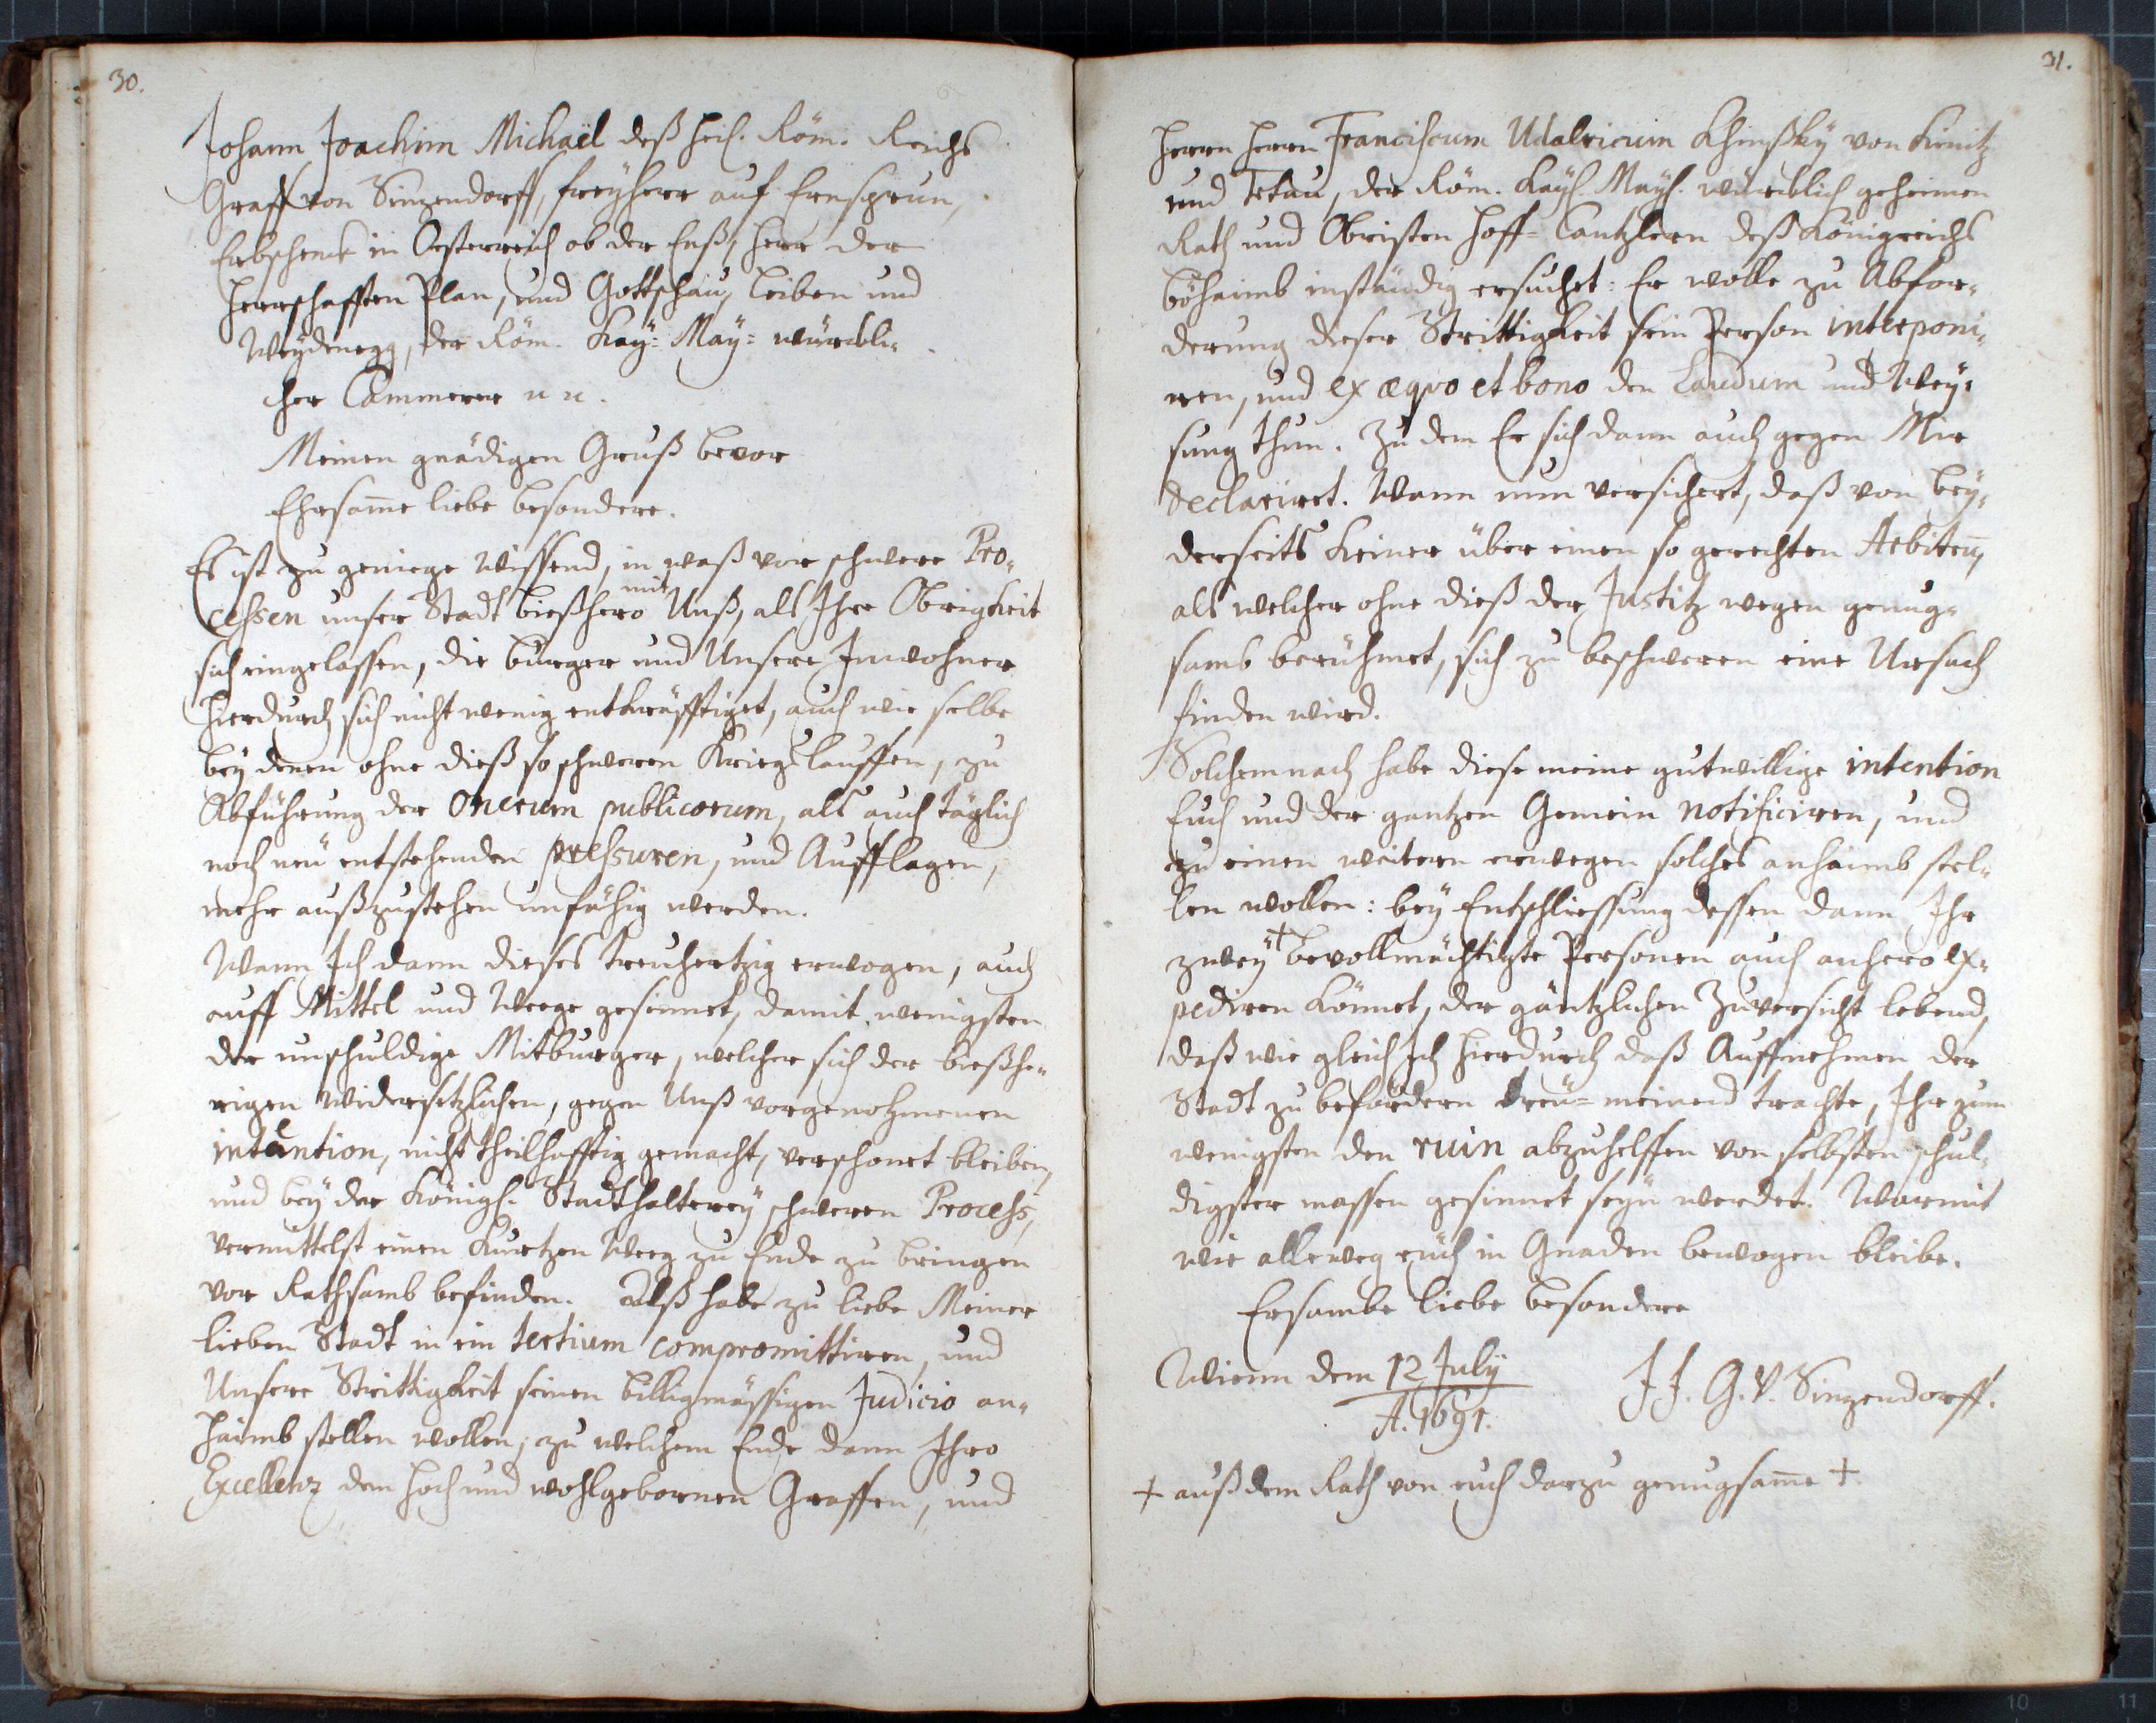 30.
Johann Joachim Michaël deß heil. Röm. Reichs
Graff von Sinzendorff, freÿherr auf Ernsprun,
Erbschenck in Oesterreich ob der Enß, Herr der
Herrschafften Plan, und Gottschau, Leiben und
Weÿdenegg, der Röm. Kaÿ: Maÿ: würckli-
cher Cammerer
Meinen gnädigen Gruß bevor
Ehrsam̅e liebe besondere.
Es ist zu geniege wissend, in waß vor schwere Pro-
cessen unser Stadt bießhero mit Unß, als Ihre Obrigkeit
sich eingelassen, die Burger und Unsere Inwohner
hierdurch sich nicht wenig entkräfftiget, auch wie selbe
beÿ denen ohne dieß so schweren Kriegslauffen, zu
Abführung der Onerum publicorum, als auch täglich
noch neü entstehenden pressuren, und Aufflagen,
mehr außzustehen unfähig werden.
Wann Ich dann dieses treuhertzig erwogen, auch
auff Mittel und Weege gesinnet, damit wenigsten
der unschuldige Mitburger, welcher sich der bießhe-
rigen widersetzlichen, gegen Unß vorgenohmenen
intention, nicht theilhafftig gemacht, verschonet bleiben,
und beÿ der Königl. Stadthaltereÿ schweren Process,
vermittelst einen Kurtzen Weeg zu Ende zu bringen
vor Rathsamb befinden. Alß habe zu liebe Meiner
lieben Stadt in ein tertium compromittiren, und
Unsere Strittigkeit seinen billigmässigen Judicio an-
haimb stellen wollen; zu welchem Ende dann Ihro
Excellenz dem Hoch und wohlgebornen Graffen, und
31.
Herrn Herrn Franciscum Udalricum Khinßkÿ von Kinitz
und Tetau, der Röm. Kaÿl. Maÿl. würcklich geheimen
Rath und Obristen Hoff-Cantzlern deß Königreichs
Böhaimb inständig ersuchet: Er wolle zu Abfor-
derung dieser Strittigkeit sein Person interponi-
ren, und ex æquo et bono den Laudum und Weÿ-
sung thun. Zu dem Er sich dann auch gegen Mir
declariret. Wann nun versichert, daß von beÿ-
derseits Keiner über einen so gerechten Arbitrum,
als welcher ohne dieß der Justitz wegen genug-
samb berühmet, sich zu beschweren eine Ursach
finden wird.
Solchemnach habe diese meine gutwillige intention
Euch und der gantzen Gemein notificiren, und
zu einen weitern erwegen solches anhaimb stel-
len wollen: beÿ Entschliessung dessen dann Ihr
zweÿ + bevollmächtigte Personen auch anhero ex-
pediren könnet, der gäntzlichen Zuversicht lebend,
daß wie gleich Ich hierdurch daß Auffnehmen der
Stadt zu befördern treü-meinend trachte, Ihr zum
wenigsten den ruin abzuhelffen von selbsten schul-
digster massen gesinnet seÿn werdet. Warmit
wie alleweg euch in Gnaden bewogen bleibe.
Ersambe liebe besondere
Wienn dem 12 Julÿ
A. 1691.
J J. G. V. Sinzendorff.
+ auß dem Rath von euch darzu genugsam̅e +